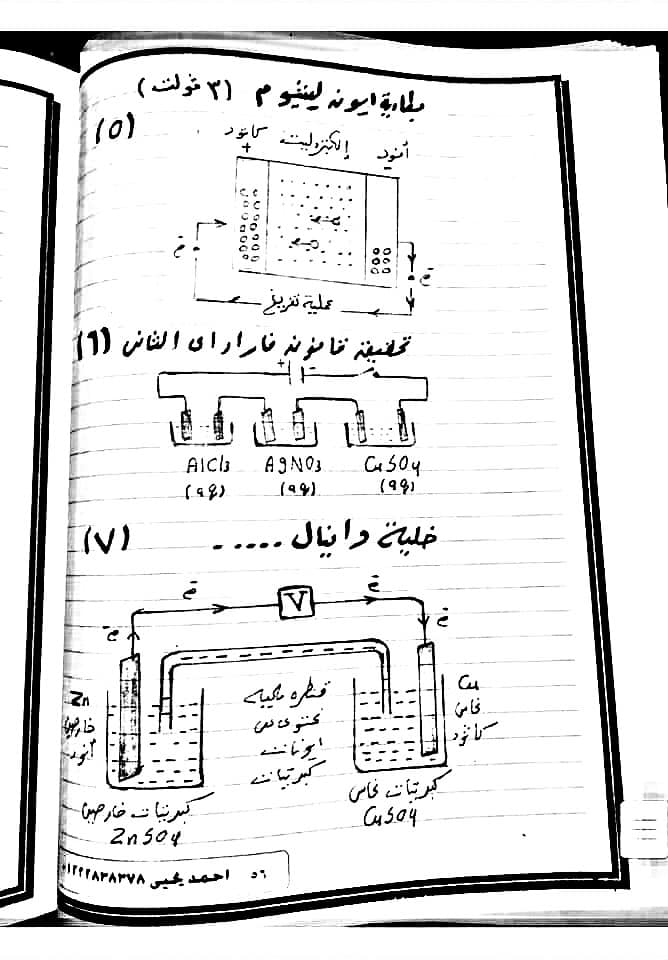 بطارية ايون ليثيوم (٣ فولت)
(٥)
كاثود إلكتروليت أنود
+
e⁻
e⁻
عملية تفريغ
تحقيق قانون فاراداى الثانى (٦)
+ -
AlCl3 AgNO3 CuSO4
(aq) (aq) (aq)
خلية دانيال ..... (٧)
e⁻ V e⁻
e⁻ e⁻
Zn
خارصين
أنود
قنطره ملحيه
تحتوى على
ايونات
كبريتات
Cu
نحاس
كاثود
كبريتات خارصين
ZnSO4
كبريتات نحاس
CuSO4
٥٦ احمد يحيى ٠١٢٢٢٨٣٨٣٧٨